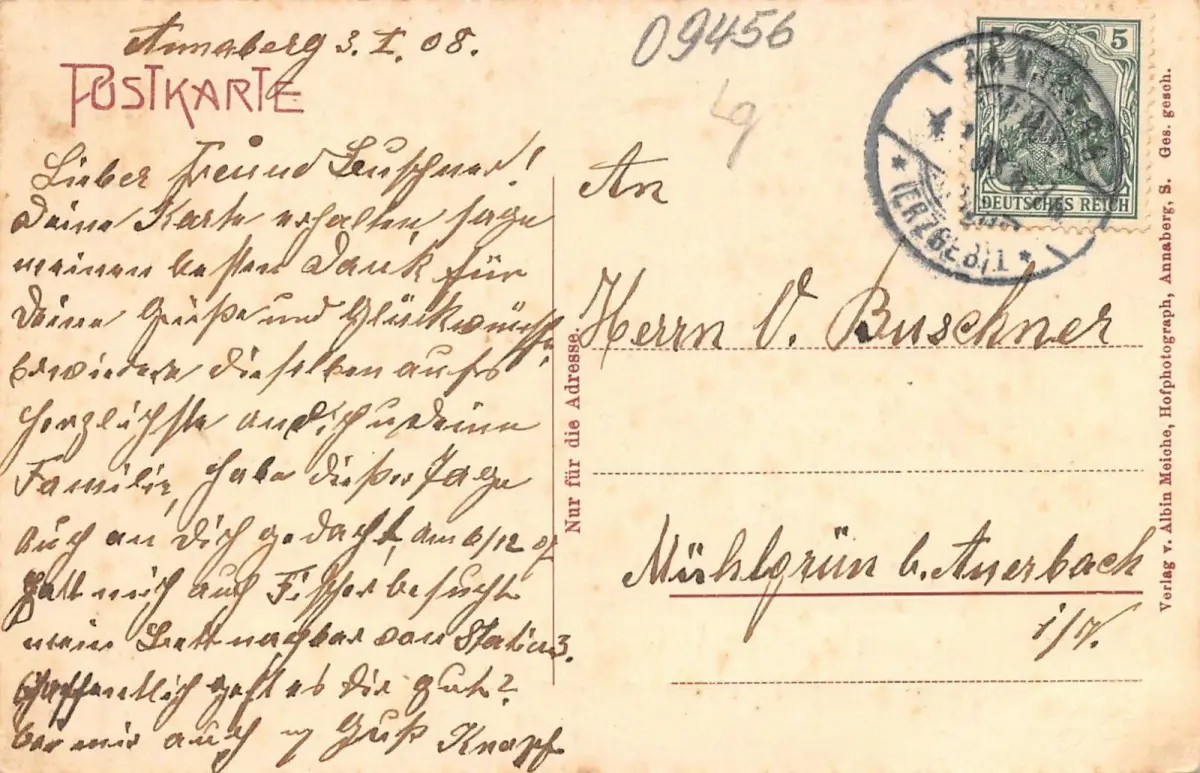 Annaberg 3. I. 08.
09456
POSTKARTE
Lieber Freund Buschner!
Deine Karte erhalten sage
meinen besten Dank für
Deine Grüße und Glückwünsche
erwiedere dieselben aufs
herzlichste an Dich u Deine
Familie, habe dießer Tage
auch an Dich gedacht, am 6/12 07
hatt mich auch Fischer besucht
mein Bettnachbar von Station 3.
Hoffentlich geht es Dir gut?
bei mir auch Gruß Knopf
An
Herrn O. Buschner
Mühlgrün b. Auerbach
i/V.
Nur für die Adresse.
5 5
DEUTSCHES REICH
(ERZGEB.) 1
Verlag v. Albin Meiche, Hofphotograph, Annaberg, S. Ges. gesch.